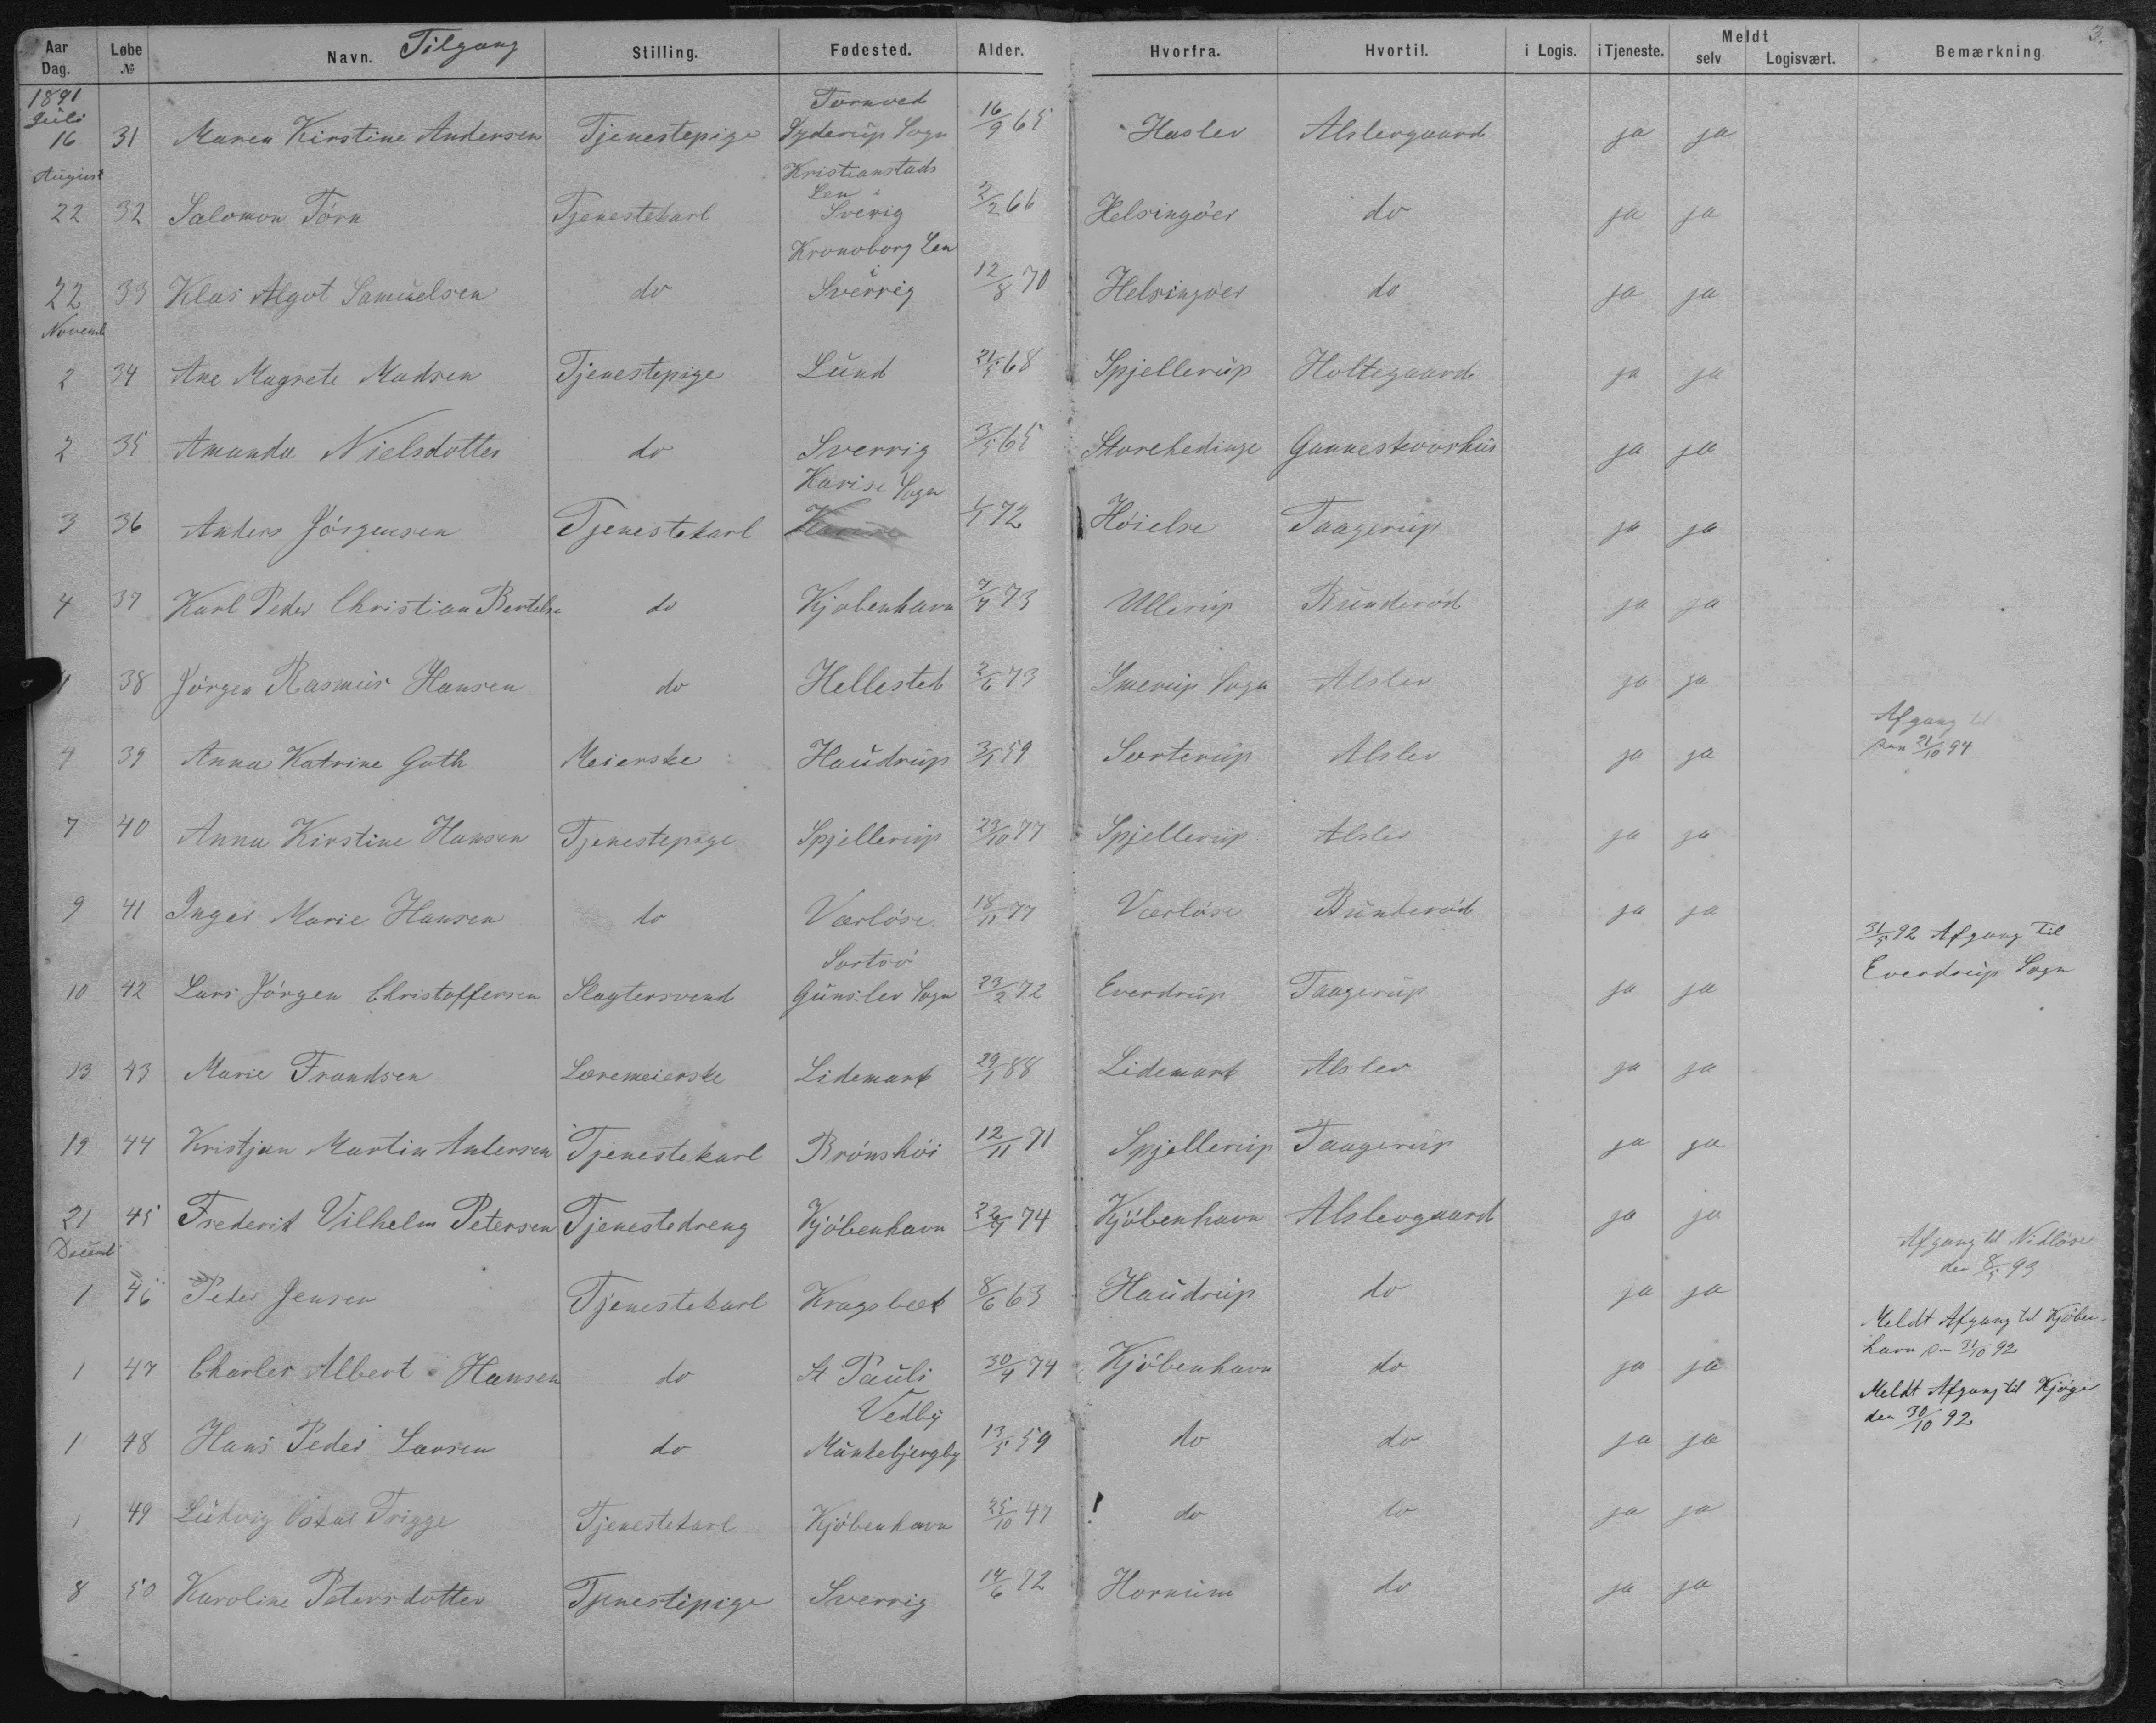 3.
Aar Dag. Løbe № Navn. Tilgang Stilling. Fødested. Alder. Hvorfra. Hvortil. i Logis. i Tjeneste. Meldt selv Logisvært. Bemærkning.
1891
Juli
Tornved
16 31 Maren Kirstine Andersen Tjenestepige Syderup Sogn 16/9 65 Haslev Alslevgaard ja ja
August
Kristianstads
Len i
22 32 Salomon Törn Tjenestekarl Sverig 2/2 66 Helsingöer do ja ja
Kronoborg Len
i
22 33 Klas Algot Samuelsen do Sverrig 12/8 70 Helsingöer do ja ja
Novemb
2 34 Ane Magrete Madsen Tjenestepige Lund 21/5 68 Spjellerup Holtegaard ja ja
2 35 Amanda Nielsdotter do Sverrig 3/5 65 Storehedinge Ganneskovshus ja ja
Karise Sogn
3 36 Anders Jörgensen Tjenestekarl Karise 1/1 72 Höielse Taagerup ja ja
4 37 Karl Peder Christian Bertelse do Kjobenhavn 7/7 73 Ullerup Bunderöd ja ja
4 38 Jörgen Rasmus Hansen do Hellested 2/6 73 Smerup Sogn Alslev ja ja
Afgang til
4 39 Anna Katrine Goth Meierske Haudrup 3/1 59 Sørterup Alslev ja ja den 21/10 94
7 40 Anna Kirstine Hansen Tjenestepige Spjellerup 23/10 77 Spjellerup Alslev ja ja
9 41 Inger Marie Hansen do Værlöse 18/11 77 Værlöse Bunderöd ja ja
31/5 92 Afgang til
Sortsö
Everdrup Sogn
10 42 Lars Jörgen Christoffersen Slagtersvend Gunslev Sogn 23/2 72 Everdrup Taagerup ja ja
13 43 Marie Frandsen Læremeierske Lidemark 29/1 88 Lidemark Alslev ja ja
19 44 Kristjan Martin Andersen Tjenestekarl Brönshöi 12/11 71 Spjellerup Taagerup ja ja
21 45 Frederik Vilhelm Petersen Tjenestedreng Kjöbenhavn 22/7 74 Kjöbenhavn Alslevgaard ja ja
Decemb
Afgang til Nidløse
den 8/5 93
1 46 Peder Jensen Tjenestekarl Kragsbek 8/6 63 Haudrup do ja ja
Meldt Afgang til Kjöben-
havn den 31/10 92
1 47 Charles Albert Hansen do St Pauls 30/4 74 Kjöbenhavn do ja ja
Meldt Afgang til Kjöge
den 30/10 92
Vedby
1 48 Hans Peder Larsen do Munkebjergby 13/5 59 do do ja ja
1 49 Ludvig Oskar Trigge Tjenestekarl Kjöbenhavn 25/10 47 do do ja ja
8 50 Karoline Petersdotter Tjenestepige Sverrig 14/6 72 Hornum do ja ja